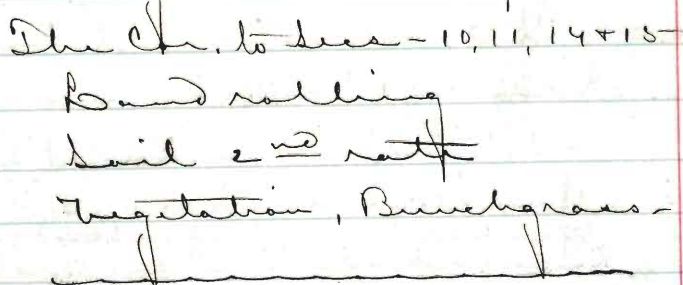 The Cor. to Secs - 10, 11, 14 + 15
Land rolling
Soil 2nd rate
Vegetation, Bunchgrass -